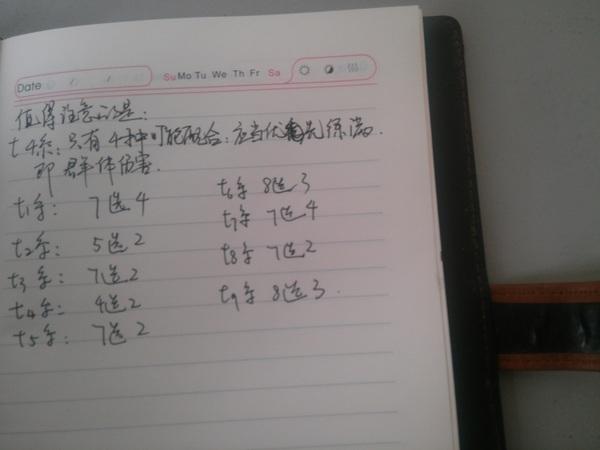 Date
Su Mo Tu We Th Fr Sa
值得注意的是:
t4系: 只有4种可能配合: 应当优先练满.
即群体伤害.
t1系: 7选4
t2系: 5选2
t3系: 7选2
t4系: 4选2
t5系: 7选2
t6系 8选3
t7系 7选4
t8系 7选2
t9系 8选3.